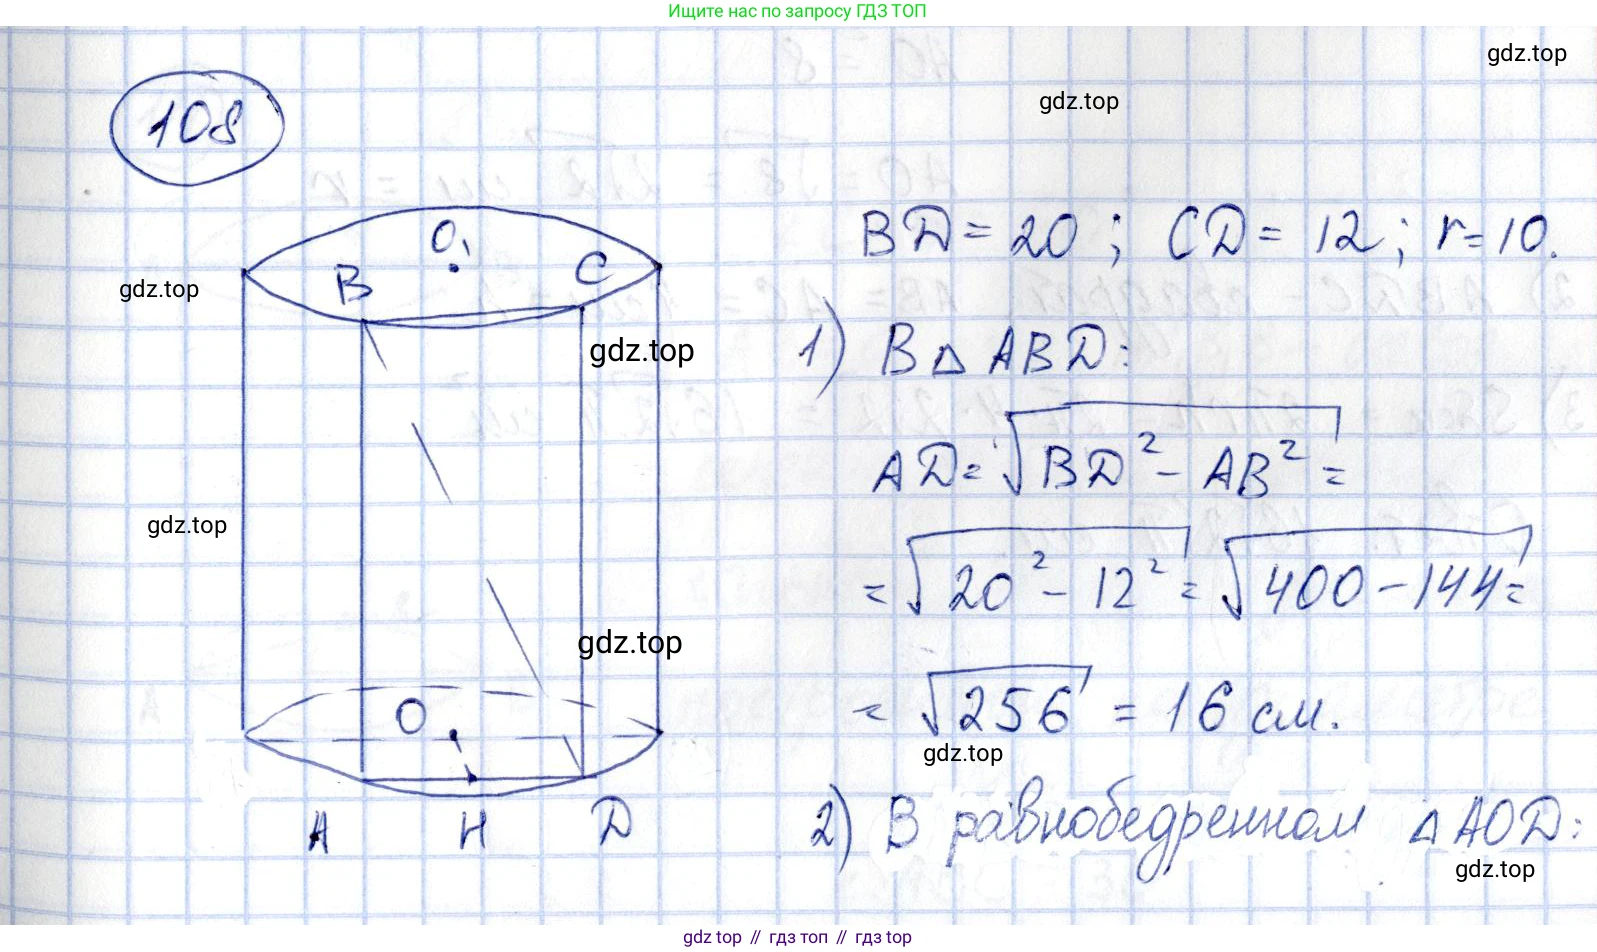 Ищите нас по запросу ГДЗ ТОП
gdz.top
gdz.top
108
O₁
B
C
gdz.top
gdz.top
gdz.top
gdz.top
O
A
H
D
BD = 20 ; CD = 12 ; r = 10.
1) В △ ABD:
AD = √BD² - AB² =
= √20² - 12² = √400 - 144 =
= √256 = 16 см.
gdz.top
2) В равнобедренном △ AOD:
gdz.top
gdz.top // гдз топ // gdz.top